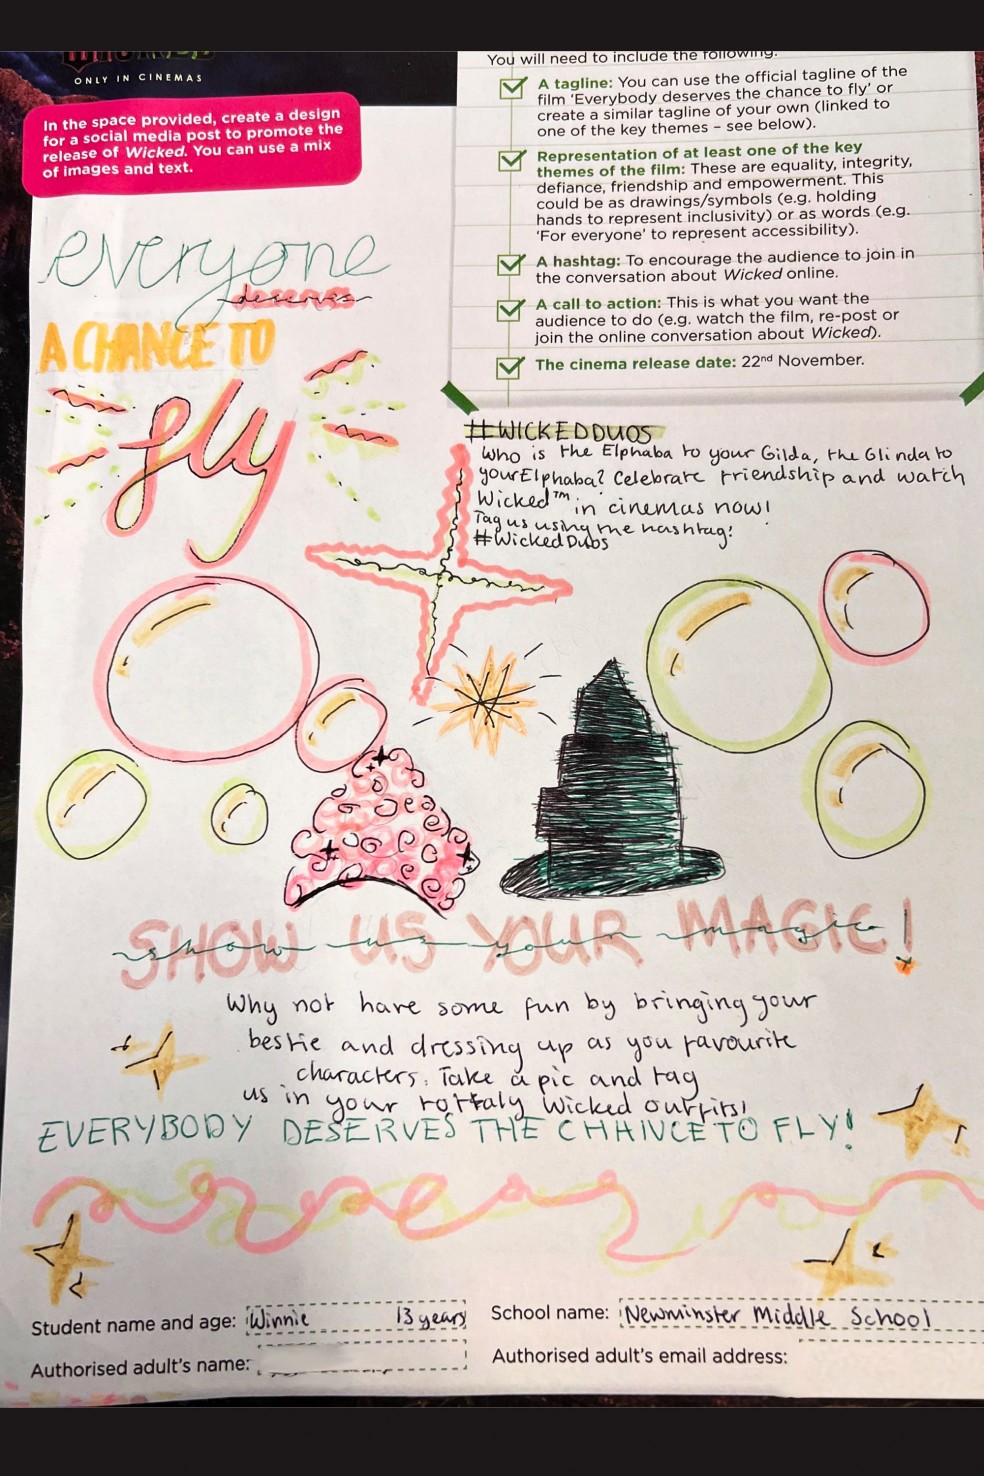 ONLY IN CINEMAS
In the space provided, create a design
for a social media post to promote the
release of Wicked. You can use a mix
of images and text.
You will need to include the following:
A tagline: You can use the official tagline of the
film ‘Everybody deserves the chance to fly’ or
create a similar tagline of your own (linked to
one of the key themes – see below).
Representation of at least one of the key
themes of the film: These are equality, integrity,
defiance, friendship and empowerment. This
could be as drawings/symbols (e.g. holding
hands to represent inclusivity) or as words (e.g.
‘For everyone’ to represent accessibility).
A hashtag: To encourage the audience to join in
the conversation about Wicked online.
A call to action: This is what you want the
audience to do (e.g. watch the film, re-post or
join the online conversation about Wicked).
The cinema release date: 22nd November.
everyone
deserves
A CHANCE TO
fly
#WICKEDDUOS
Who is the Elphaba to your Gilda, the Glinda to
your Elphaba? Celebrate friendship and watch
Wicked™ in cinemas now!
Tag us using the hashtag!
#WickedDubs
SHOW US YOUR MAGIC!
show us your magic
Why not have some fun by bringing your
bestie and dressing up as you favourite
characters. Take a pic and tag
us in your totfaly Wicked outfits!
EVERYBODY DESERVES THE CHANCE TO FLY!
Student name and age: Winnie 13 years
School name: Newminster Middle School
Authorised adult’s name:
Authorised adult’s email address: